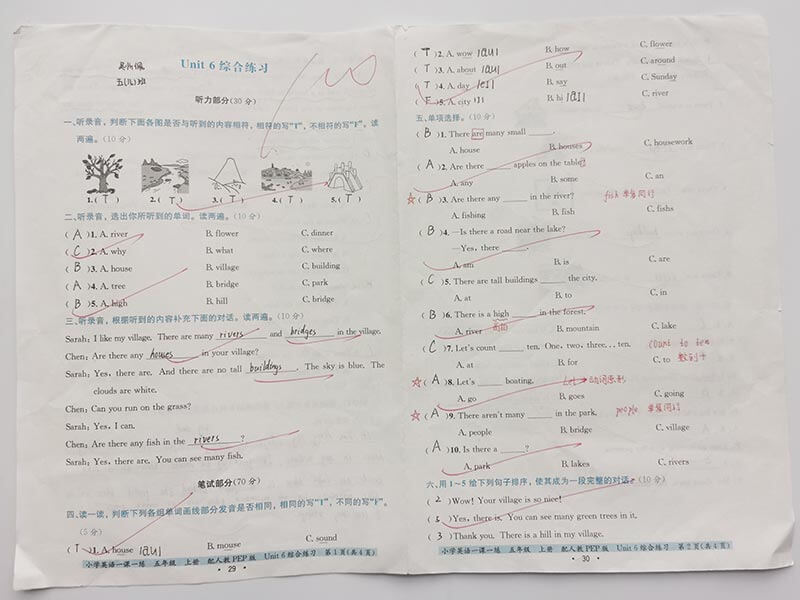 吴
五(八)班
Unit 6 综合练习
100
听力部分(30 分)
一、听录音，判断下面各图是否与听到的内容相符，相符的写“T”，不相符的写“F”。读
两遍。(10 分)
1. ( T ) 2. ( T ) 3. ( T ) 4. ( T ) 5. ( T )
二、听录音，选出你所听到的单词。读两遍。(10 分)
( A )1. A. river B. flower C. dinner
( C )2. A. why B. what C. where
( B )3. A. house B. village C. building
( A )4. A. tree B. bridge C. park
( B )5. A. high B. hill C. bridge
三、听录音，根据听到的内容补充下面的对话。读两遍。(10 分)
Sarah: I like my village. There are many rivers and bridges in the village.
Chen: Are there any houses in your village?
Sarah: Yes, there are. And there are no tall buildings. The sky is blue. The
clouds are white.
Chen: Can you run on the grass?
Sarah: Yes, I can.
Chen: Are there any fish in the rivers ?
Sarah: Yes, there are. You can see many fish.
笔试部分(70 分)
四、读一读，判断下列各组单词画线部分发音是否相同，相同的写“T”，不同的写“F”。
(5 分)
( T )1. A. house /aʊ/ B. mouse C. sound
小学英语一课一练 五年级 上册 配人教PEP版 Unit 6 综合练习 第1页(共4页)
· 29 ·
( T )2. A. wow /aʊ/ B. how C. flower
( T )3. A. about /aʊ/ B. out C. around
( T )4. A. day /eɪ/ B. say C. Sunday
( F )5. A. city /ɪ/ B. hi /aɪ/ C. river
五、单项选择。(10 分)
( B )1. There are many small ____.
A. house B. houses C. housework
( A )2. Are there ____ apples on the table?
A. any B. some C. an
☆( B )3. Are there any ____ in the river? fish 单复同行
A. fishing B. fish C. fishs
( B )4. —Is there a road near the lake?
—Yes, there ____.
A. am B. is C. are
( C )5. There are tall buildings ____ the city.
A. at B. to C. in
( B )6. There is a high ____ in the forest.
A. river B. mountain C. lake
( C )7. Let's count ____ ten. One, two, three... ten. count to ten
A. at B. for C. to 数到十
☆( A )8. Let's ____ boating. Let's 动词原形
A. go B. goes C. going
☆( A )9. There aren't many ____ in the park. people 单复同行
A. people B. bridge C. village
( A )10. Is there a ____?
A. park B. lakes C. rivers
六、用 1～5 给下列句子排序，使其成为一段完整的对话。(10 分)
( 2 )Wow! Your village is so nice!
( 5 )Yes, there is. You can see many green trees in it.
( 3 )Thank you. There is a hill in my village.
小学英语一课一练 五年级 上册 配人教PEP版 Unit 6 综合练习 第2页(共4页)
· 30 ·